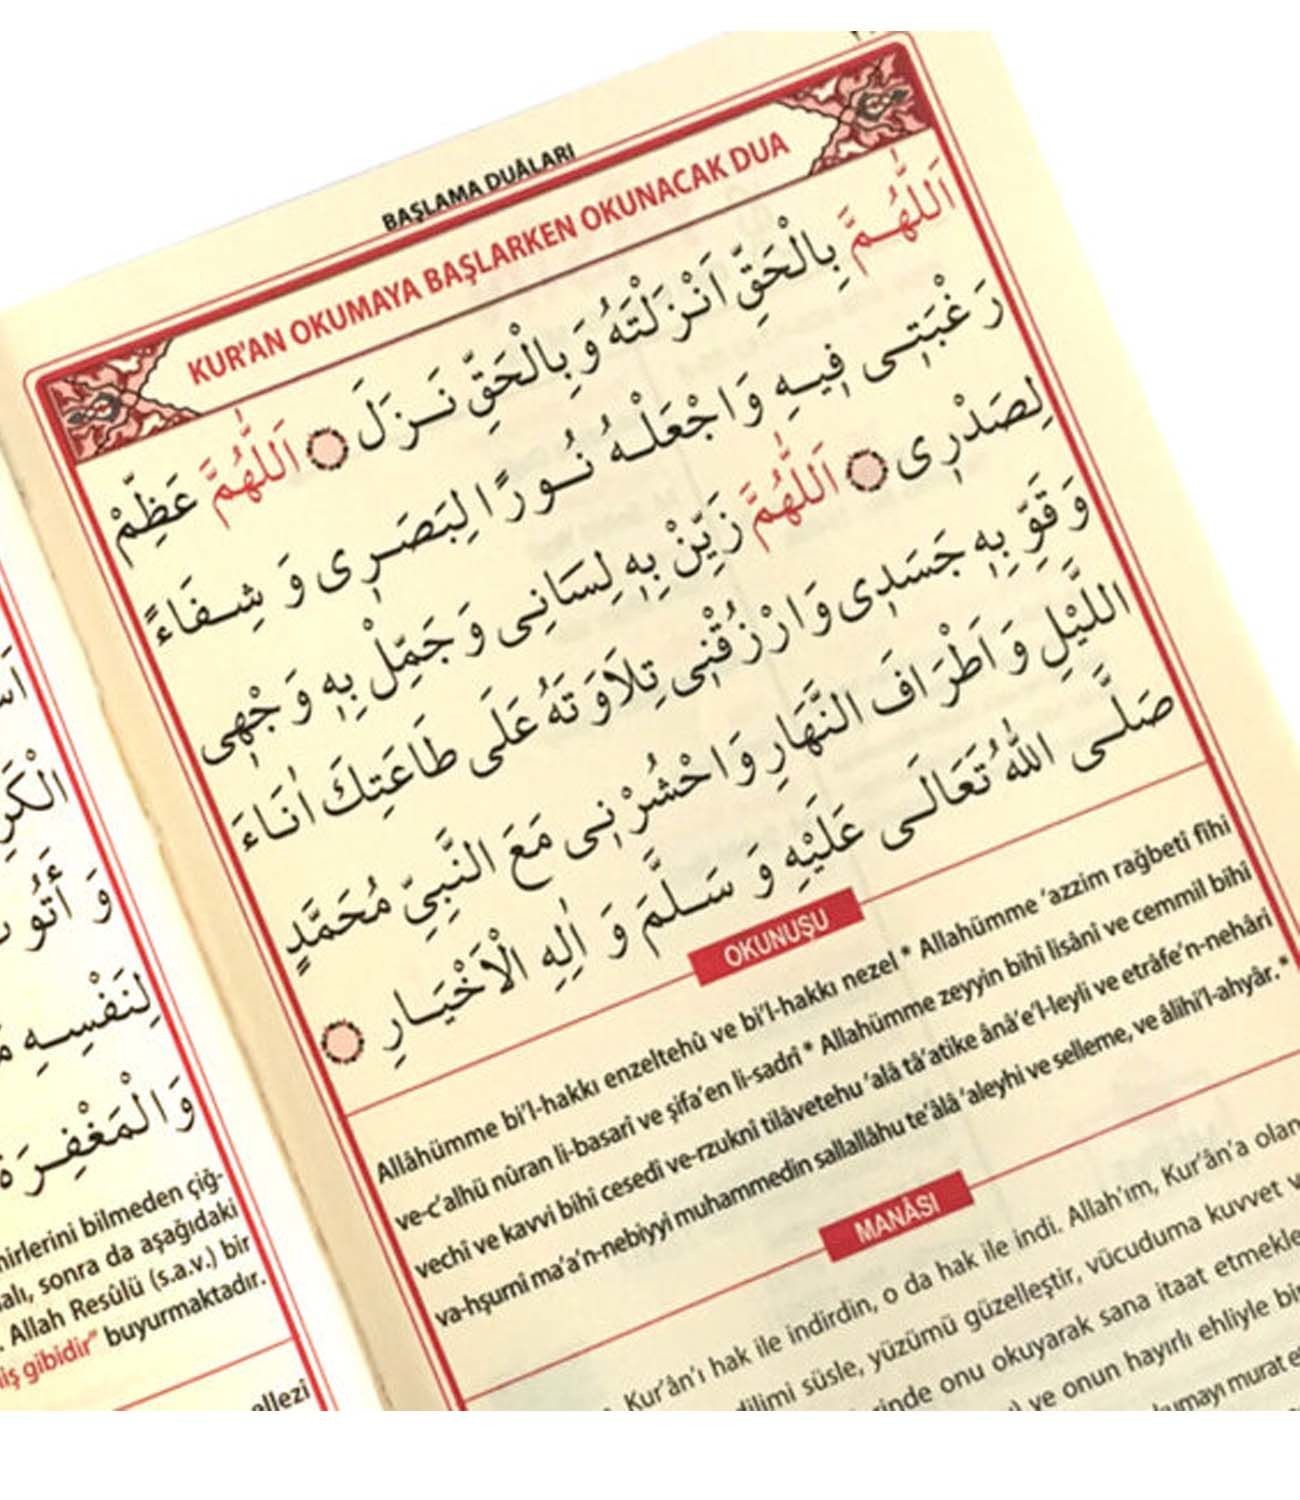 BAŞLAMA DUÂLARI
KUR'AN OKUMAYA BAŞLARKEN OKUNACAK DUA
اَللّٰهُمَّ بِالْحَقِّ اَنْزَلْتَهُ وَبِالْحَقِّ نَزَلَ ۝ اَللّٰهُمَّ عَظِّمْ
رَغْبَتِى فِيهِ وَاجْعَلْهُ نُورًا لِبَصَرِى وَ شِفَاءً
لِصَدْرِى ۝ اَللّٰهُمَّ زَيِّنْ بِهِ لِسَانِى وَ جَمِّلْ بِهِ وَجْهِى
وَقَوِّ بِهِ جَسَدِى وَارْزُقْنِى تِلَاوَتَهُ عَلَى طَاعَتِكَ اٰنَاءَ
اللَّيْلِ وَاَطْرَافَ النَّهَارِ وَاحْشُرْنِى مَعَ النَّبِيِّ مُحَمَّدٍ
صَلَّى اللّٰهُ تَعَالَى عَلَيْهِ وَ سَلَّمَ وَ اٰلِهِ الْاَخْيَارِ ۝
OKUNUŞU
Allâhümme bi’l-hakkı enzeltehû ve bi’l-hakkı nezel * Allahümme ‘azzim rağbetî fîhi
ve-c’alhü nûran li-basarî ve şifa’en li-sadrî * Allahümme zeyyin bihî lisânî ve cemmil bihî
vechî ve kavvi bihî cesedî ve-rzuknî tilâvetehu ‘alâ tâ’atike ânâ’e’l-leyli ve etrâfe’n-nehâri
va-hşurnî ma’a’n-nebiyyi muhammedin sallallâhu te’âlâ ‘aleyhi ve selleme, ve âlihi’l-ahyâr. *
MANÂSI
Kur’ân’ı hak ile indirdin, o da hak ile indi. Allah’ım, Kur’ân’a olan
dilimi süsle, yüzümü güzelleştir, vücuduma kuvvet v
rinde onu okuyarak sana itaat etmekle
ve onun hayırlı ehliyle bi
kumayı murat e
الْكَرِ
لِنَفْسِهِ
وَالْمَغْفِرَةَ
hirlerini bilmeden çiğ-
alı, sonra da aşağıdaki
. Allah Resûlü (s.a.v.) bir
iş gibidir” buyurmaktadır.
ellezî